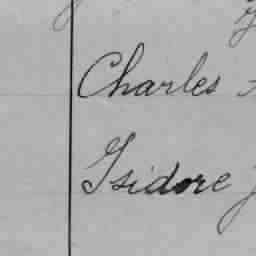 Charles
Isidore